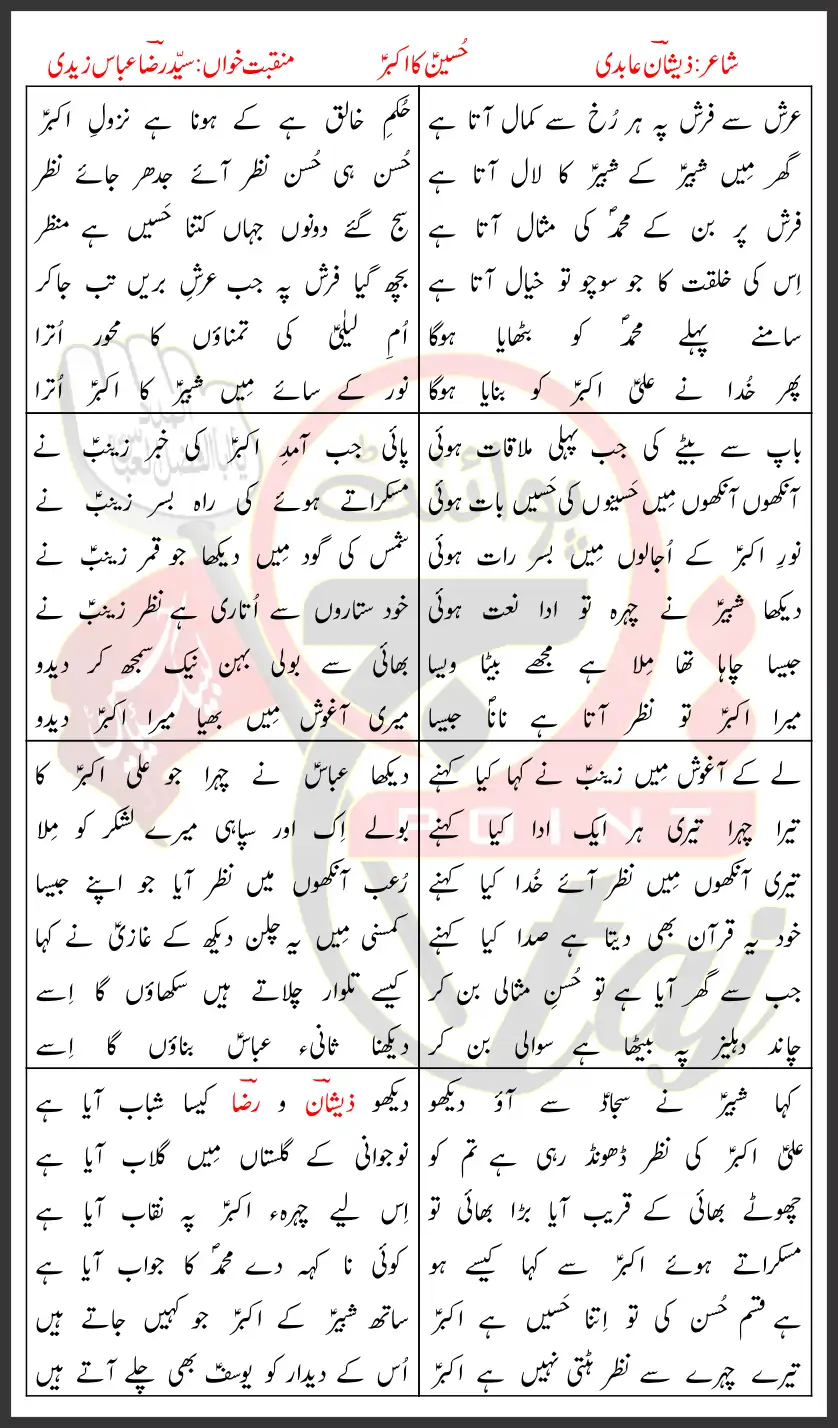 شاعر: ذیشان عابدی
حُسینؑ کا اکبرؑ
منقبت خواں: سیّد رضا عباس زیدی
عرش سے فرش پہ ہر رُخ سے کمال آتا ہے
گھر مِیں شبیرؑ کے شبیرؑ کا لال آتا ہے
فرش پر بن کے محمدؐ کی مثال آتا ہے
اِس کی خلقت کا جو سوچو تو خیال آتا ہے
سامنے پہلے محمدؐ کو بٹھایا ہوگا
پھر خُدا نے علیؑ اکبرؑ کو بنایا ہوگا
حُکمِ خالق ہے کے ہونا ہے نزولِ اکبرؑ
حُسن ہی حُسن نظر آئے جدھر جائے نظر
سج گئے دونوں جہاں کتنا حَسیں ہے منظر
بچھ گیا فرش پہ جب عرشِ بریں تب جاکر
اُمِ لیلٰیؑ کی تمناؤں کا محور اُترا
نور کے سائے مِیں شبیرؑ کا اکبرؑ اُترا
باپ سے بیٹے کی جب پہلی ملاقات ہوئی
آنکھوں آنکھوں مِیں حَسینوں کی حَسیں بات ہوئی
نورِ اکبرؑ کے اُجالوں مِیں بسر رات ہوئی
دیکھا شبیرؑ نے چہرہ تو ادا نعت ہوئی
جیسا چاہا تھا مِلا ہے مجھے بیٹا ویسا
میرا اکبرؑ تو نظر آتا ہے ناناؐ جیسا
پائی جب آمدِ اکبرؑ کی خبر زینبؑ نے
مسکراتے ہوئے کی راہ بسر زینبؑ نے
شمس کی گود مِیں دیکھا جو قمر زینبؑ نے
خود ستاروں سے اُتاری ہے نظر زینبؑ نے
بھائی سے بولی بہن نیک سمجھ کر دیدو
میری آغوش مِیں بھیا میرا اکبرؑ دیدو
لے کے آغوش مِیں زینبؑ نے کہا کیا کہنے
تیرا چہرا تیری ہر ایک ادا کیا کہنے
تیری آنکھوں مِیں نظر آئے خُدا کیا کہنے
خود یہ قرآن بھی دیتا ہے صدا کیا کہنے
جب سے گھر آیا ہے تو حُسنِ مثالی بن کر
چاند دہلیز پہ بیٹھا ہے سوالی بن کر
دیکھا عباسؑ نے چہرا جو علی اکبرؑ کا
بولے اِک اور سپاہی میرے لشکر کو مِلا
رُعب آنکھوں میں نظر آیا جو اپنے جیسا
کمسنی مِیں یہ چلن دیکھ کے غازیؑ نے کہا
کیسے تلوار چلاتے ہیں سکھاؤں گا اِسے
دیکھنا ثانیء عباسؑ بناؤں گا اِسے
کہا شبیرؑ نے سجادؑ سے آؤ دیکھو
علیؑ اکبرؑ کی نظر ڈھونڈ رہی ہے تم کو
چھوٹے بھائی کے قریب آیا بڑا بھائی تو
مسکراتے ہوئے اکبرؑ سے کہا کیسے ہو
ہے قسم حُسن کی تو اِتنا حَسیں ہے اکبرؑ
تیرے چہرے سے نظر ہٹتی نہیں ہے اکبرؑ
دیکھو ذیشان و رضا کیسا شباب آیا ہے
نوجوانی کے گلستاں مِیں گلاب آیا ہے
اِس لیے چہرہء اکبرؑ پہ نقاب آیا ہے
کوئی نا کہہ دے محمدؐ کا جواب آیا ہے
ساتھ شبیرؑ کے اکبرؑ جو کہیں جاتے ہیں
اُس کے دیدار کو یوسفؑ بھی چلے آتے ہیں
پوائنٹ
POINT
taj